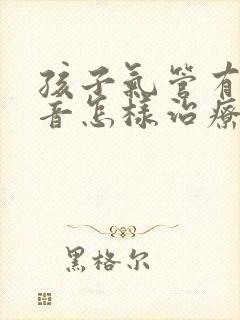 孩子氣管有
音怎樣治療
黑格尔